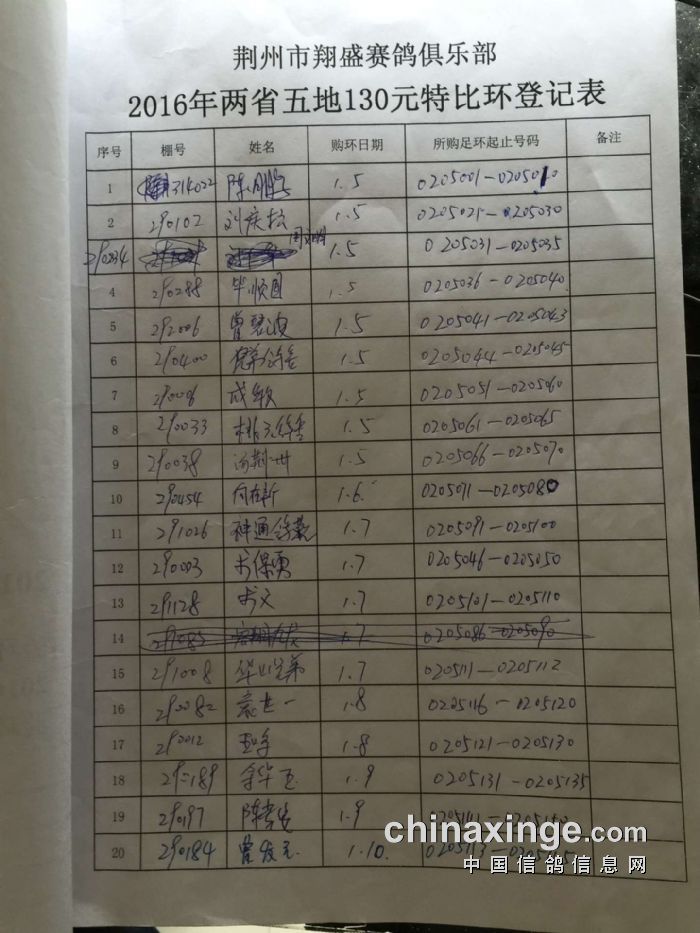 荆州市翔盛赛鸽俱乐部
2016年两省五地130元特比环登记表
序号 棚号 姓名 购环日期 所购足环起止号码 备注
1 314022 陈 1.5 0205001-0205010
2 290102 刘庆松 1.5 0205025-0205030
290234 周文明 1.5 0205031-0205035
4 290288 毕顺国 1.5 0205036-0205040
5 292006 曾碧波 1.5 0205041-0205043
6 290400 1.5 0205044-0205045
7 290006 成敏 1.5 0205051-0205060
8 290033 1.5 0205061-0205065
9 290038 1.5 0205066-0205070
10 290454 向在新 1.6. 0205071-0205080
11 291026 神通鸽 1.7 0205091-0205100
12 290003 保 1.7 0205046-0205050
13 291128 文 1.7 0205101-0205110
14 1.7 0205086-0205090
15 291008 华 1.7 0205111-0205112
16 290082 袁世一 1.8 0205116-0205120
17 290012 1.8 0205121-0205130
18 189 余华玉 1.9 0205131-0205135
19 290197 陈 1.9
20 290184 曾发 1.10. 0205113-
chinaxinge.com
中国信鸽信息网